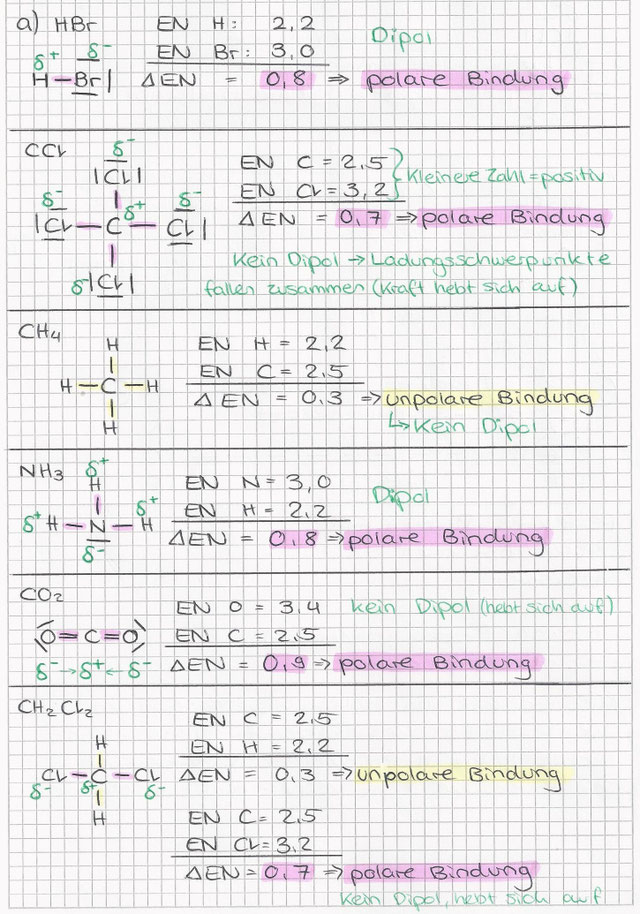 a) HBr EN H: 2,2 Dipol
δ+ δ- EN Br: 3,0
H–Br| ΔEN = 0,8 ⇒ polare Bindung
CCl δ- EN C = 2,5
|Cl| EN Cl = 3,2 } Kleinere Zahl = positiv
δ- δ+ δ- ΔEN = 0,7 ⇒ polare Bindung
|Cl–C–Cl|
Kein Dipol → Ladungsschwerpunkte
δ-|Cl| fallen zusammen (Kraft hebt sich auf)
CH4
H EN H = 2,2
EN C = 2,5
H–C–H ΔEN = 0,3 ⇒ unpolare Bindung
H ↳ Kein Dipol
NH3 δ+ EN N = 3,0 Dipol
H δ+ EN H = 2,2
δ+ H–N–H ΔEN = 0,8 ⇒ polare Bindung
δ-
CO2 EN O = 3,4 kein Dipol (hebt sich auf)
O=C=O EN C = 2,5
δ- → δ+ ← δ- ΔEN = 0,9 ⇒ polare Bindung
CH2Cl2 EN C = 2,5
H EN H = 2,2
Cl–C–Cl ΔEN = 0,3 ⇒ unpolare Bindung
δ- δ+ δ-
H EN C = 2,5
EN Cl = 3,2
ΔEN = 0,7 ⇒ polare Bindung
Kein Dipol, hebt sich auf